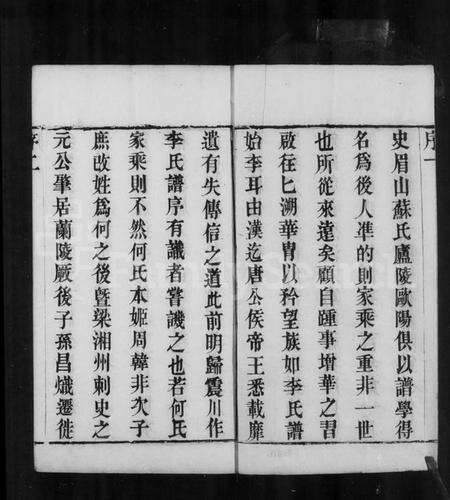 序一
史眉山蘇氏廬陵歐陽俱以譜學得
名爲後人準的則家乘之重非一世
也所從來遠矣顧自踵事增華之習
啟往匕溯華胄以矜望族如李氏譜
始李耳由漢迄唐公侯帝王悉載靡
遺有失傳信之道此前明歸震川作
李氏譜序有識者嘗譏之也若何氏
家乘則不然何氏本姬周韓非次子
庶改姓爲何之後曁梁湘州刺史之
元公肇居蘭陵厥後子孫昌熾遷徙
序二